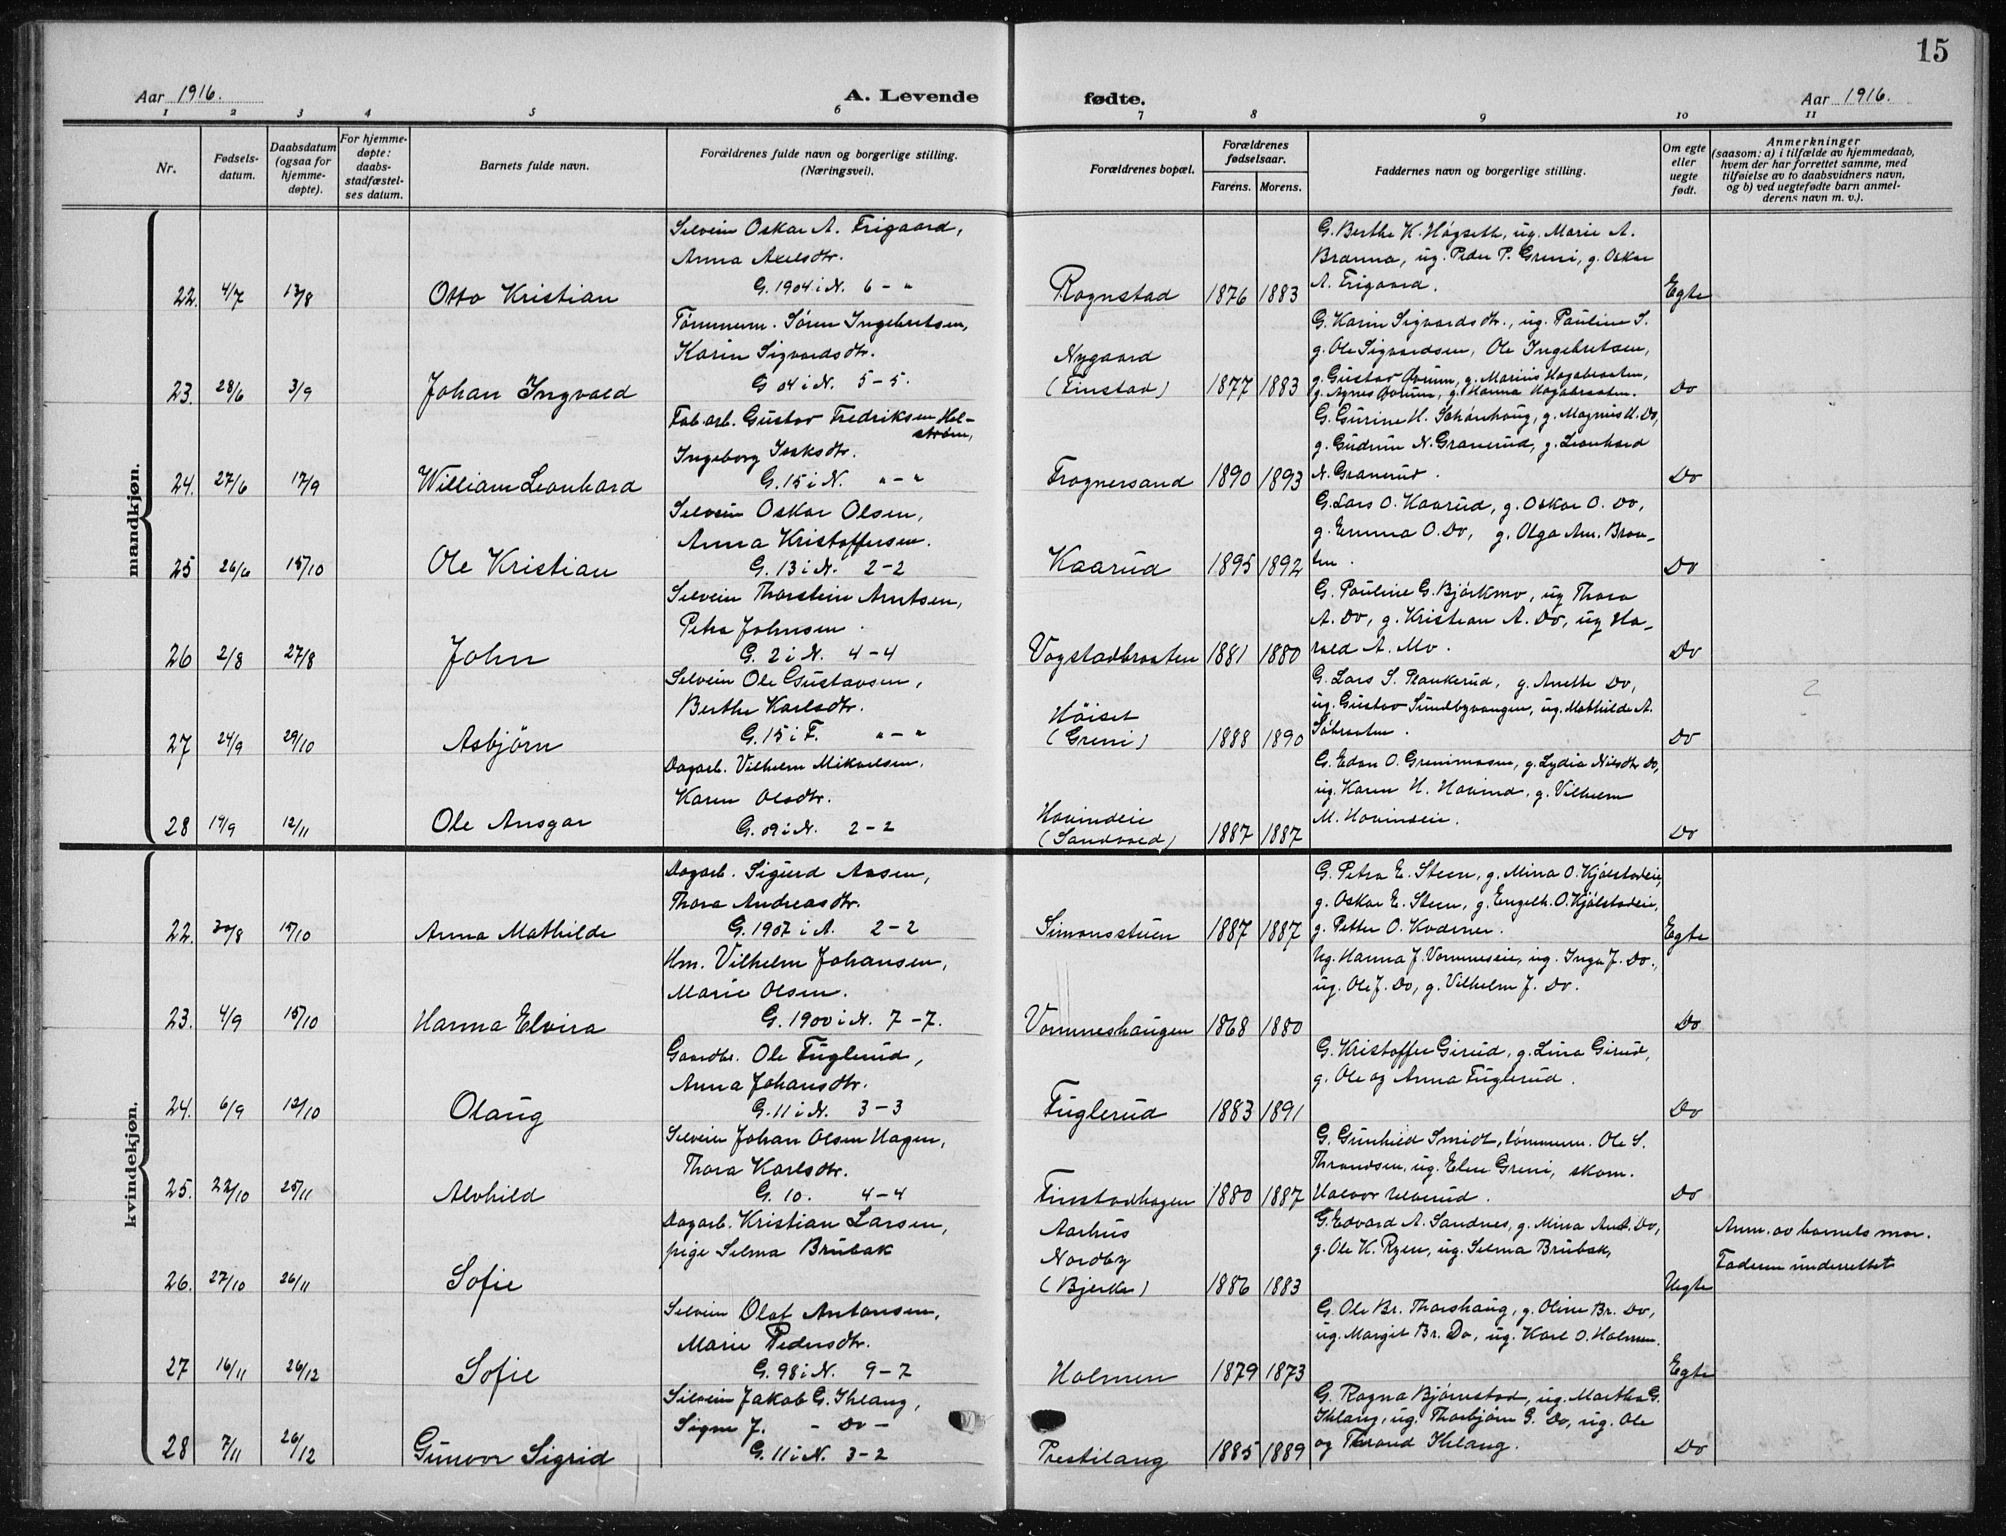 15
Aar 1916.
A. Levende
fødte.
Aar 1916.
1 2 3 4 5 6 7 8 9 10 11
Nr.
Fødsels-
datum.
Daabsdatum
(ogsaa for
hjemme-
døpte).
For hjemme-
døpte:
daabs-
stadfæstel-
ses datum.
Barnets fulde navn.
Forældrenes fulde navn og borgerlige stilling.
(Næringsvei).
Forældrenes bopæl.
Forældrenes
fødselsaar.
Farens. Morens.
Faddernes navn og borgerlige stilling.
Om egte
eller
uegte
født.
Anmerkninger
(saasom: a) i tilfælde av hjemmedaab,
hvem der har forrettet samme, med
tilføielse av to daabsvidners navn,
og b) ved uegtefødte barn anmel-
derens navn m. v.).
mandkjøn.
22. 4/7 13/8 Otto Kristian
Selveier Oskar A. Frigaard,
Anna Axelsdtr.
G. 1904 i N. 6 - "
Rognstad 1876 1883
G. Berthe K. Høgseth, ug. Marie A.
Branna, ug. Peder P. Greni, g. Oskar
A. Frigaard.
Egte
23. 28/6 3/9 Johan Ingvald
Tømmerm. Søren Ingebretsen,
Karin Sigvardsdtr.
G 04 i N. 5 - 5.
Nygaard
(Finstad) 1877 1883
G. Karin Sigvardsdtr., ug. Pauline S.
g. Ole Sigvardsen, Ole Ingebretsen,
g. Gustav Ovrum, g. Marius Hagabraaten,
g. Agnes Ovrum, g. Hanna Hagabraaten.
Do
24. 27/6 17/9 William Leonhard
Fab.arb. Gustav Fredriksen Hel-
strøm,
Ingeborg Isaksdtr.
G. 15 i N. " - "
Frognersand 1890 1893
G. Gurine H. Schønhaug, g. Magnus H. Do,
g. Gudrun N. Granerud, g. Leonhard
N. Granerud.
Do
25 26/6 15/10 Ole Kristian
Selveier Oskar Olsen,
Anna Kristoffersen.
G. 13 i N. 2 - 2
Kaarud 1895 1892
G. Lars O. Kaarud, g. Oskar O. Do,
g. Emma O. Do, g. Olga Am. Braa-
ten.
Do
26 2/8 27/8 John
Selveier Thorstein Arntsen,
Petra Johnsen.
G. 2 i N. 4 - 4
Vogstadbraaten 1881 1880
G. Pauline G. Bjørkmo, ug Thora
A. Do, g. Kristian A. Do, ug Ha-
rald A. Mo.
Do
27 24/9 29/10 Asbjørn
Selveier Ole Gustavsen,
Berthe Karlsdtr.
G. 15 i F. " - "
Høiset
(Greni) 1888 1890
G. Lars S. Plankerud, g. Anette Do,
ug. Gustav Sundbyvangen, ug. Mathilde A.
Do
2
28 19/9 12/11 Ole Ansgar
Dagarb. Vilhelm Mikaelsen,
Karen Olsdtr.
G. 09 i N. 2 - 2
Hovindeie
(Sandvold) 1887 1887
G. Edon O. Grenimosen, g. Lydia Nilsdtr Do,
ug. Karen H. Hovind, g. Vilhelm
M. Hovindeie.
Do
kvindekjøn.
22. 30/8 15/10 Anna Mathilde
Dagarb. Sigurd Aasen,
Thora Andreasdtr.
G. 1907 i A. 2 - 2
Simonsstuen 1887 1887
G. Petra E. Steen, g. Mina O. Kjølstadeie,
g. Oskar E. Steen, g. Engelh. O. Kjølstadeie,
g. Petter O. Kværner.
Egte
23. 4/9 15/10 Hanna Elvira
Hm. Vilhelm Johansen,
Marie Olsen.
G. 1900 i N. 7 - 7.
Vommeshaugen 1868 1880
Ug. Hanna J. Vommeseie, ug. Inga J. Do.,
ug. Ole J. Do, g. Vilhelm J. Do.
Do
24. 6/9 12/10 Olaug
Gaardbr. Ole Fuglerud,
Anna Johansdtr.
G. 11 i N. 3 - 3
Fuglerud 1883 1891
G. Kristoffer Girud, g. Lina Girud,
g. Ole og Anna Fuglerud.
Do
25. 22/10 25/11 Alvhild
Selveier Johan Olsen Hagen,
Thora Karlsdtr.
G. 10. 4 - 4
Finstadhagen 1880 1887
G. Gunhild Smidt, tømmerm. Ole S.
Thrandsen, ug. Elen Greni, skom.
Halvor Ulverud.
Do
26. 27/10 26/11 Sofie
Dagarb. Kristian Larsen,
pige Selma Brubak
Aarhus
Nordby
(Bjerke) 1886 1883
G. Edvard A. Sandnes, g. Mina And. Do,
g. Ole K. Ryen, ug. Selma Brubak,
Uegte
Anm. av barnets mor.
Faderen underrettet
27 16/11 26/12 Sofie
Selveier Olaf Antonsen,
Marie Pedersdtr.
G. 98 i N. 9 - 7
Holmen 1879 1873
G. Ole Br. Thorshaug, g. Oline Br. Do,
ug. Margit Br. Do, ug. Karl O. Holmen.
Egte
28 7/11 26/12 Gunvor Sigrid
Selveier Jakob G. Ihlang,
Signe J. - Do -
G. 11 i N. 3 - 2
Prestilang 1885 1889
G. Ragna Bjørnstad, ug. Martha G.
Ihlang, ug. Thorbjørn G. Do, ug. Ole
og Thrond Ihlang.
Do